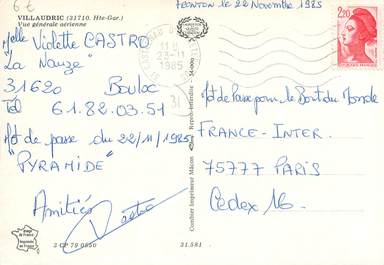 6€
VILLAUDRIC (31710. Hte-Gar.)
Vue générale aérienne
FRONTON le 22 Novembre 1985
Melle Violette CASTRO
La Nauze"
31620 Bouloc
Tél 61.82.03.51
Mot de passe du 22/11/1985
"PYRAMIDE"
Amitiés
Castro
2 CP 79 0550
Image de France
Imprimée en France
Combier Imprimeur Mâcon
31.581
11 H
23-11
1985
31
2,20
Mot de Passe pour le Bout du Monde
FRANCE-INTER.
75777 PARIS
Cedex 16.